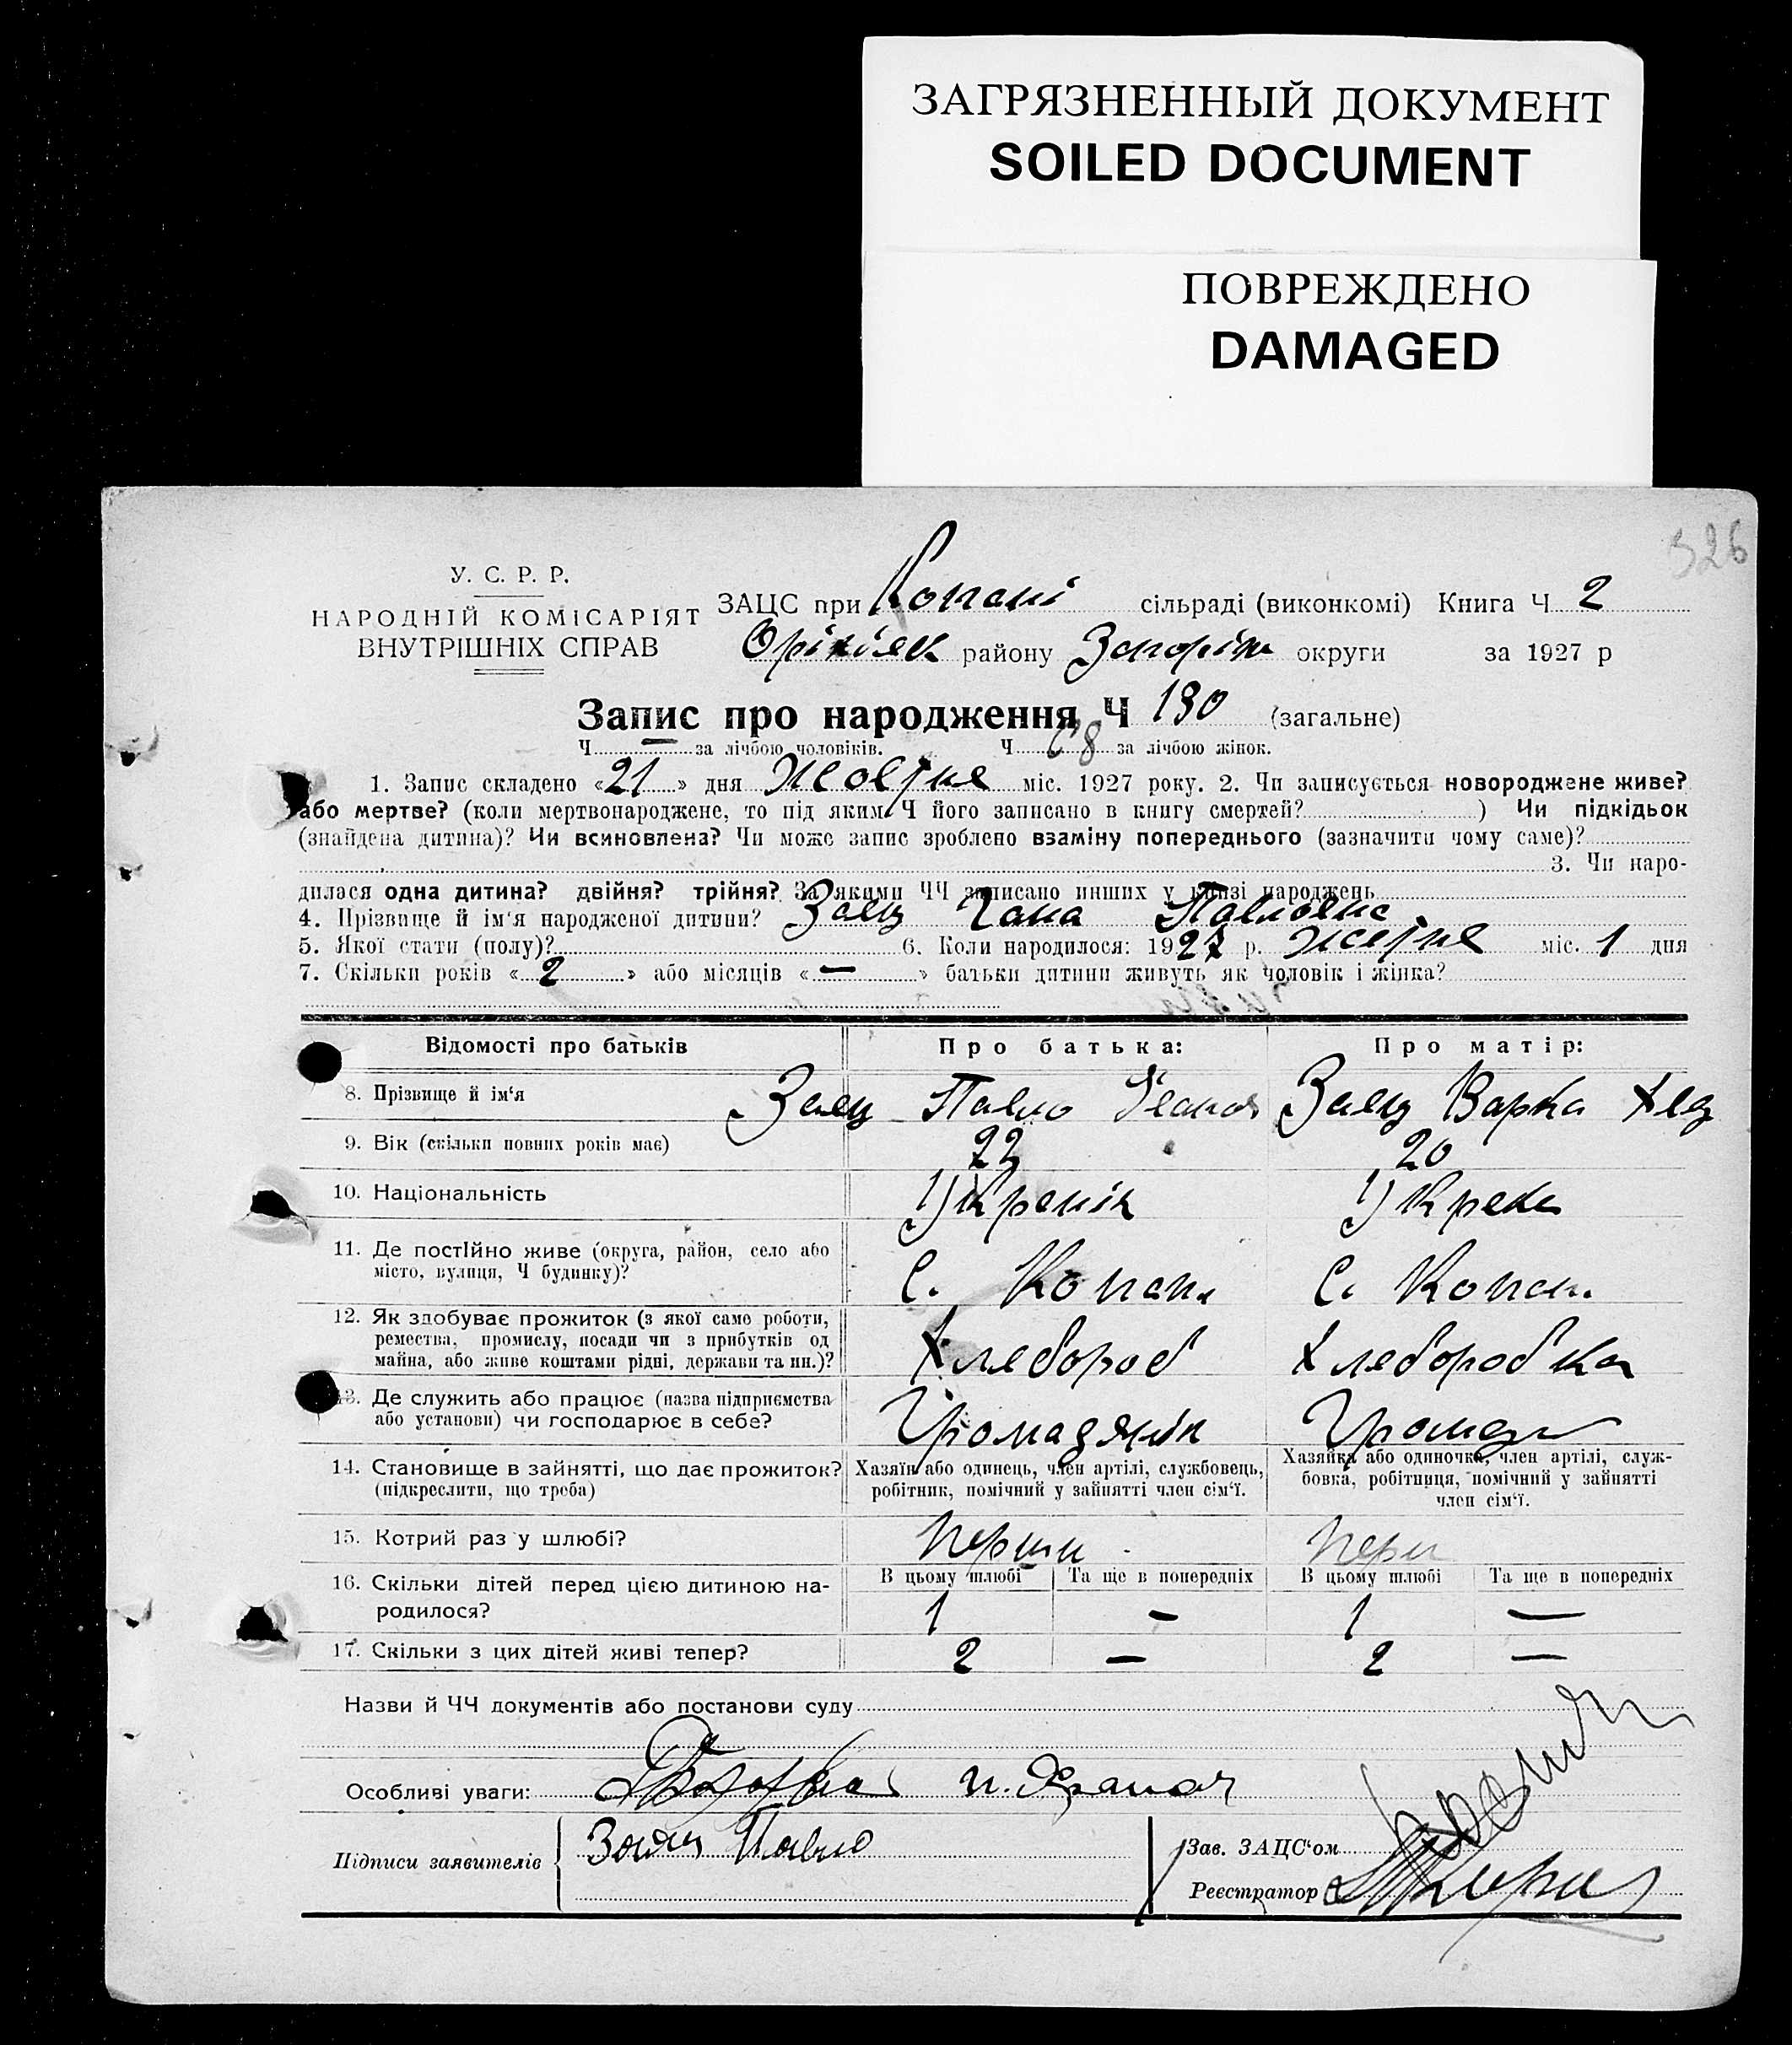 ЗАГРЯЗНЕННЫЙ ДОКУМЕНТ
SOILED DOCUMENT
ПОВРЕЖДЕНО
DAMAGED
326
У. С. Р. Р.
НАРОДНІЙ КОМІСАРІЯТ
ВНУТРІШНІХ СПРАВ
ЗАЦС при Копані сільраді (виконкомі) Книга Ч 2
району Запоріж округи за 1927 р
Запис про народження Ч 130 (загальне)
Ч — за лічбою чоловіків. Ч 68 за лічбою жінок.
1. Запис складено «21» дня Жовтня міс. 1927 року. 2. Чи записується новороджене живе?
або мертве? (коли мертвонароджене, то під яким Ч його записано в книгу смертей? ) Чи підкідьок
(знайдена дитина)? Чи всиновлена? Чи може запис зроблено взаміну попереднього (зазначити чому саме)?
3. Чи наро-
дилася одна дитина? двійня? трійня? За якими ЧЧ записано инших у книзі народжень
4. Прізвище й ім'я народженої дитини? Заец Гана Павловна
5. Якої стати (полу)? 6. Коли народилося: 1927 р. Жовтня міс. 1 дня
7. Скільки років «2» або місяців «—» батьки дитини живуть як чоловік і жінка?
Відомості про батьків Про батька: Про матір:
8. Прізвище й ім'я Заец Павло Іванов Заец Варка
9. Вік (скільки повних років має) 22 20
10. Національність Украиік Украка
11. Де постійно живе (округа, район, село або
місто, вулиця, Ч будинку)? С. Копани С. Копани
12. Як здобуває прожиток (з якої само роботи,
ремества, промислу, посади чи з прибутків од
майна, або живе коштами рідні, держави та ин.)? Хлебороб Хлеборобка
13. Де служить або працює (назва підприємства
або установи) чи господарює в себе? Громадянін Громадян
14. Становище в зайнятті, що дає прожиток?
(підкреслити, що треба)
Хазяїн або одинець, член артілі, службовець,
робітник, помічний у зайнятті член сім'ї.
Хазяйка або одиночка, член артілі, служ-
бовка, робітниця, помічний у зайнятті
член сім'ї.
15. Котрий раз у шлюбі? перши перш
16. Скільки дітей перед цією дитиною на-
родилося?
В цьому шлюбі Та ще в попередніх В цьому шлюбі Та ще в попередніх
1 — 1 —
17. Скільки з цих дітей живі тепер? 2 — 2 —
Назви й ЧЧ документів або постанови суду
Особливі уваги:
Підписи заявителів Заяц Павло
Зав. ЗАЦС'ом
Реєстратор